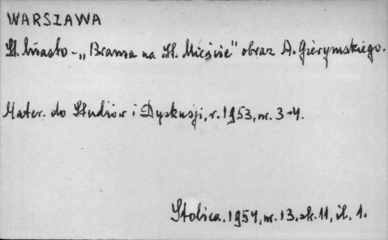 WARSZAWA
St. Miasto - "Brama na St. Mieście" obraz A. Gierymskiego.
Mater. do Studiów i Dyskusji, r. 1953, nr. 3-4.
Stolica, 1954, nr. 13, str. 11, il. 1.